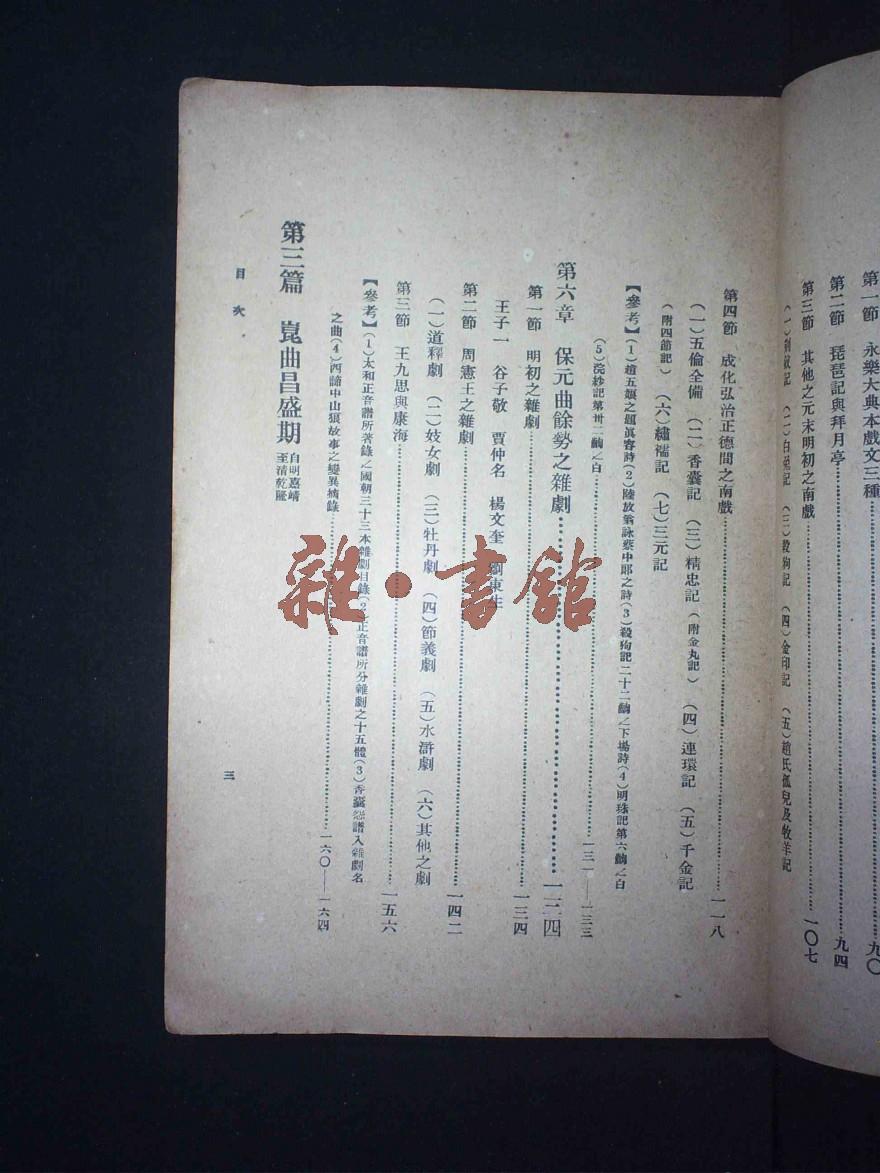 第一節　永樂大典本戲文三種……九〇
第二節　琵琶記與拜月亭……九四
第三節　其他之元末明初之南戲……一〇七
（一）荊釵記　（二）白兔記　（三）殺狗記　（四）金印記　（五）趙氏孤兒及牧羊記
第四節　成化弘治正德間之南戲……一一八
（一）五倫全備　（二）香囊記　（三）精忠記（附金丸記）　（四）連環記　（五）千金記
（附四節記）　（六）繡襦記　（七）三元記
【參考】（1）趙五娘之題真容詩（2）陸放翁詠蔡中郎之詩（3）殺狗記二十二齣之下場詩（4）明珠記第六齣之白
（5）浣紗記第卅二齣之白……一三一—一三三
第六章　保元曲餘勢之雜劇……一三四
第一節　明初之雜劇……一三四
王子一　谷子敬　賈仲名　楊文奎　劉東生
第二節　周憲王之雜劇……一四二
（一）道釋劇　（二）妓女劇　（三）牡丹劇　（四）節義劇　（五）水滸劇　（六）其他之劇
第三節　王九思與康海……一五六
【參考】（1）太和正音譜所著錄之國朝三十三本雜劇目錄（2）正音譜所分雜劇之十五體（3）香囊怨譜入雜劇名
之曲（4）西諦中山狼故事之變異摘錄……一六〇—一六四
第三篇　崑曲昌盛期　自明嘉靖
至清乾隆
目次
三
雜·書館